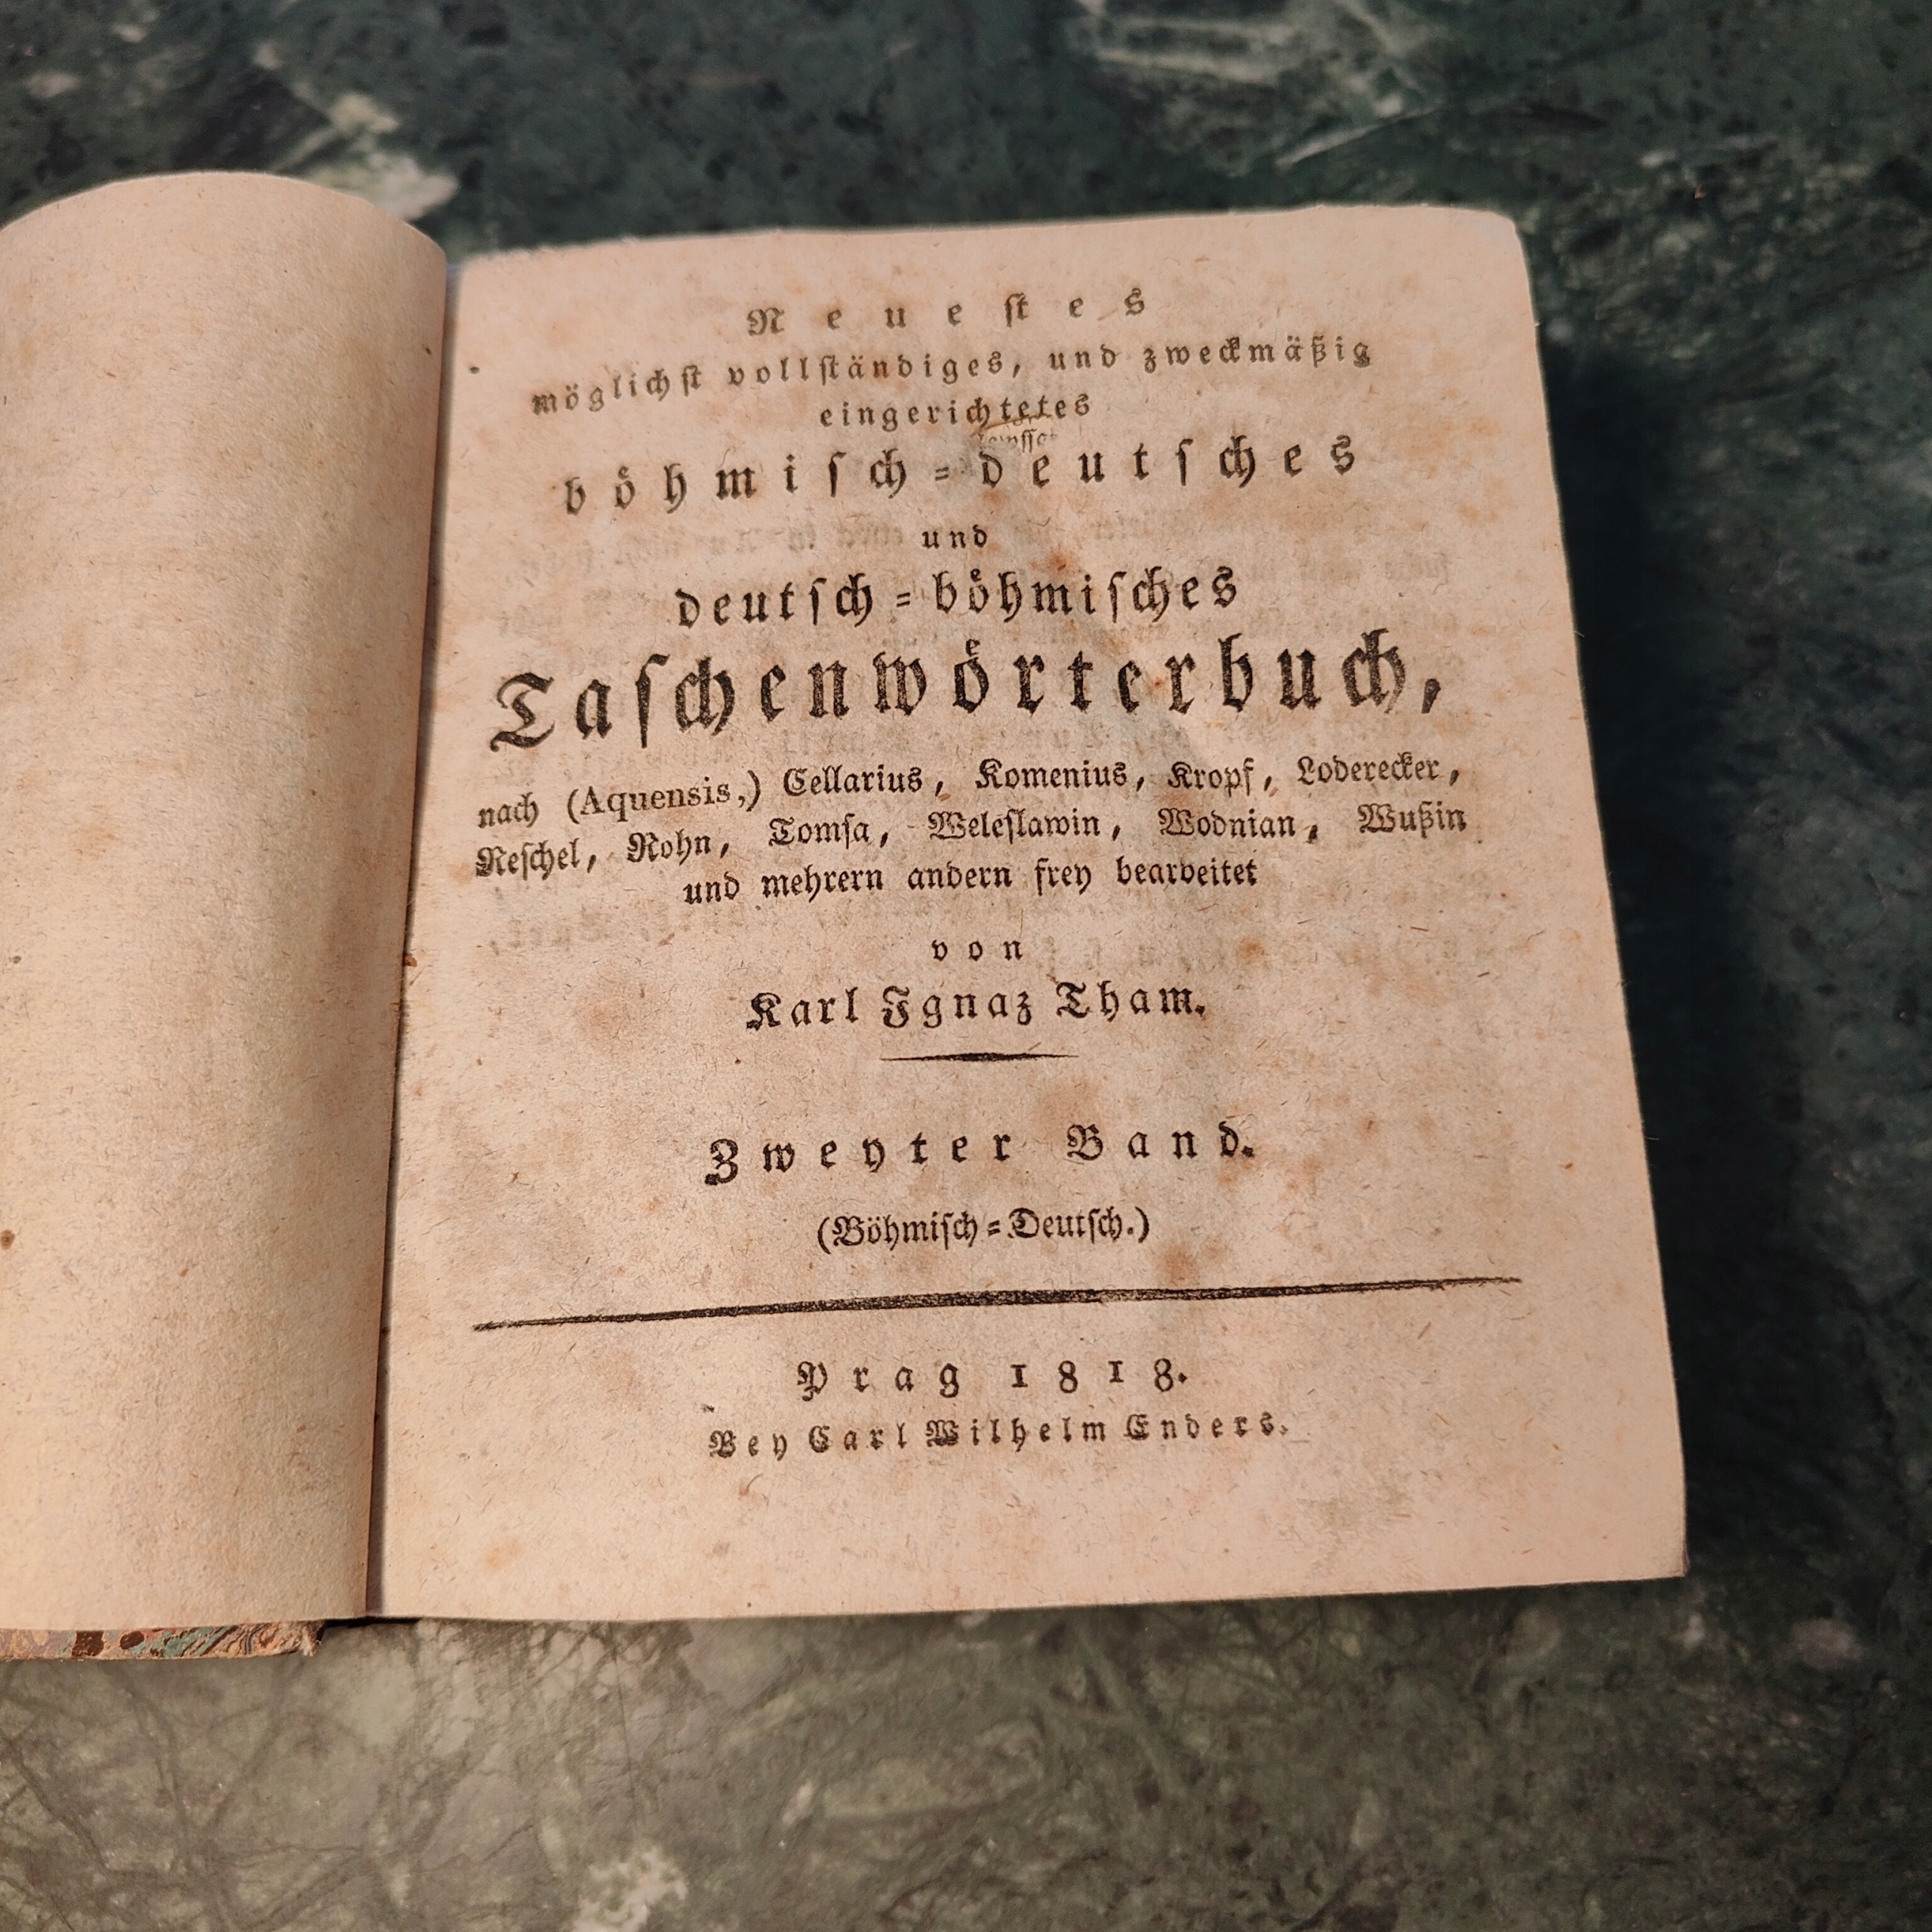 Neueſtes
möglichſt vollſtändiges, und zweckmäßig
eingerichtetes
böhmiſch=deutſches
und
deutſch=böhmiſches
Taſchenwörterbuch,
nach (Aquensis,) Cellarius, Komenius, Kropf, Loderecker,
Reſchel, Rohn, Tomſa, Weleſlawin, Wodnian, Wußin
und mehrern andern frey bearbeitet
von
Karl Ignaz Tham.
Zweyter Band.
(Böhmiſch=Deutſch.)
Prag 1818.
Bey Carl Wilhelm Enders.